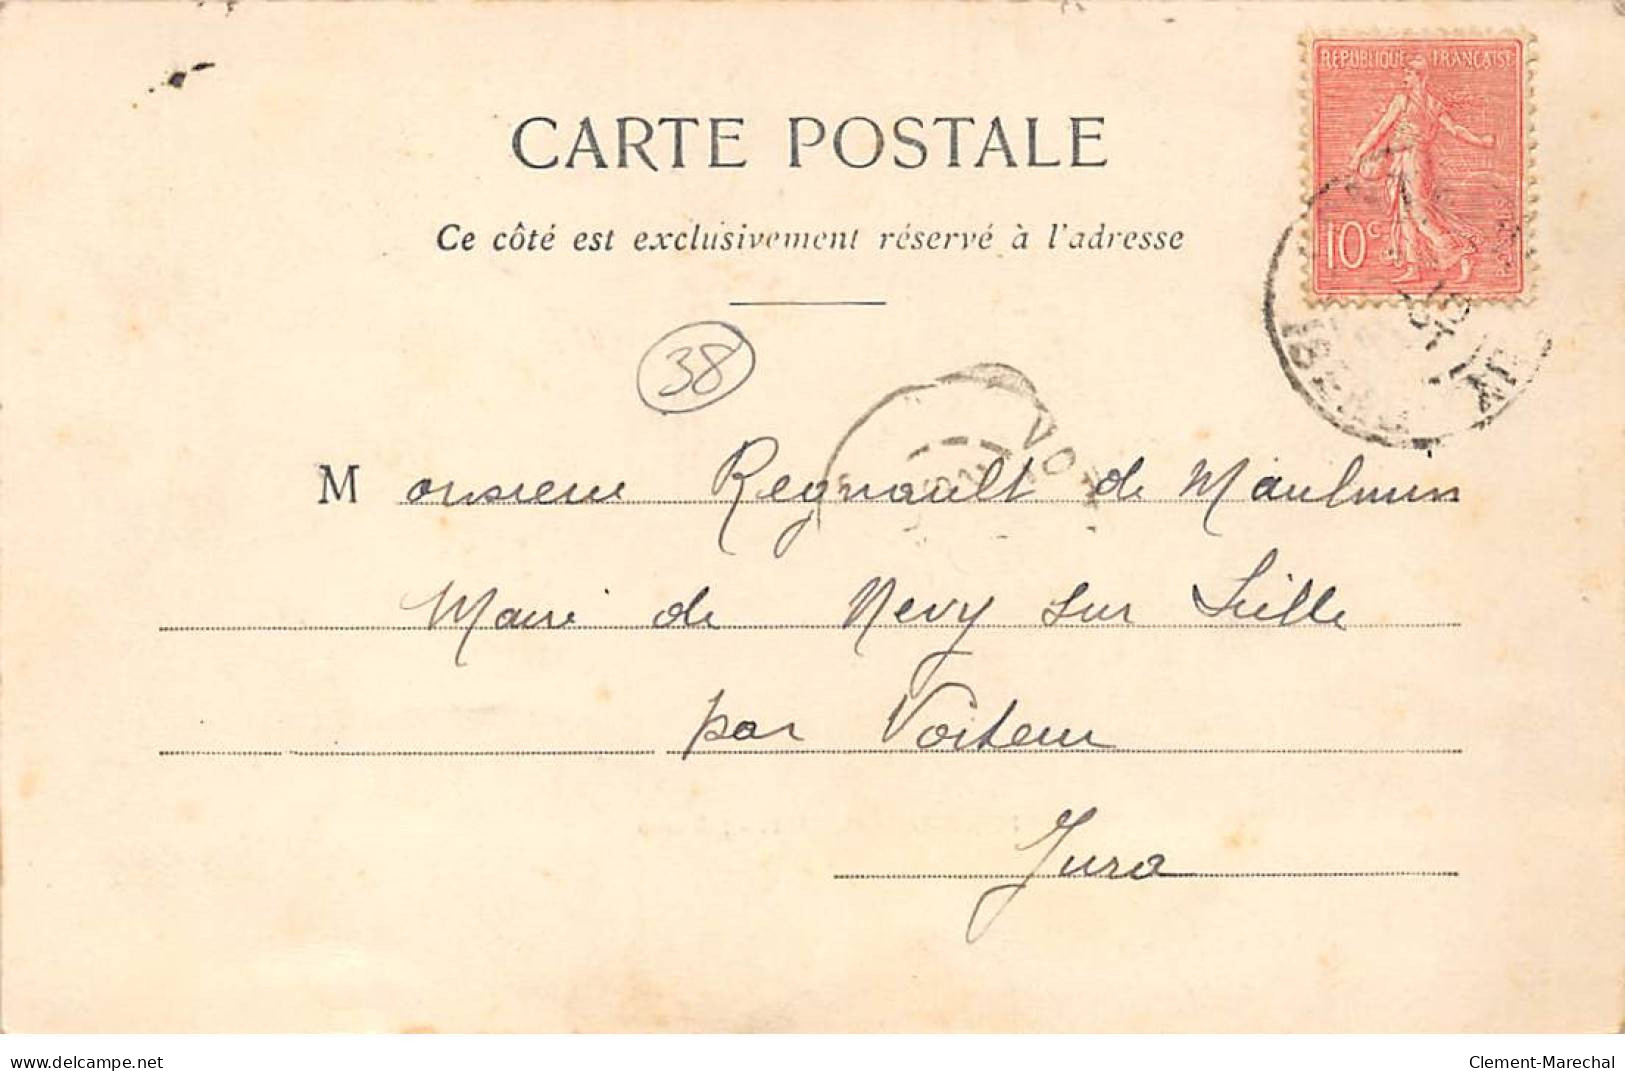 REPUBLIQUE FRANÇAISE
10c
CARTE POSTALE
Ce côté est exclusivement réservé à l'adresse
38
ISÈRE
VO
Monsieur Regnault de Maulmin
Maire de Nevy sur Seille
par Voiteur
Jura
www.delcampe.net
Clement-Marechal